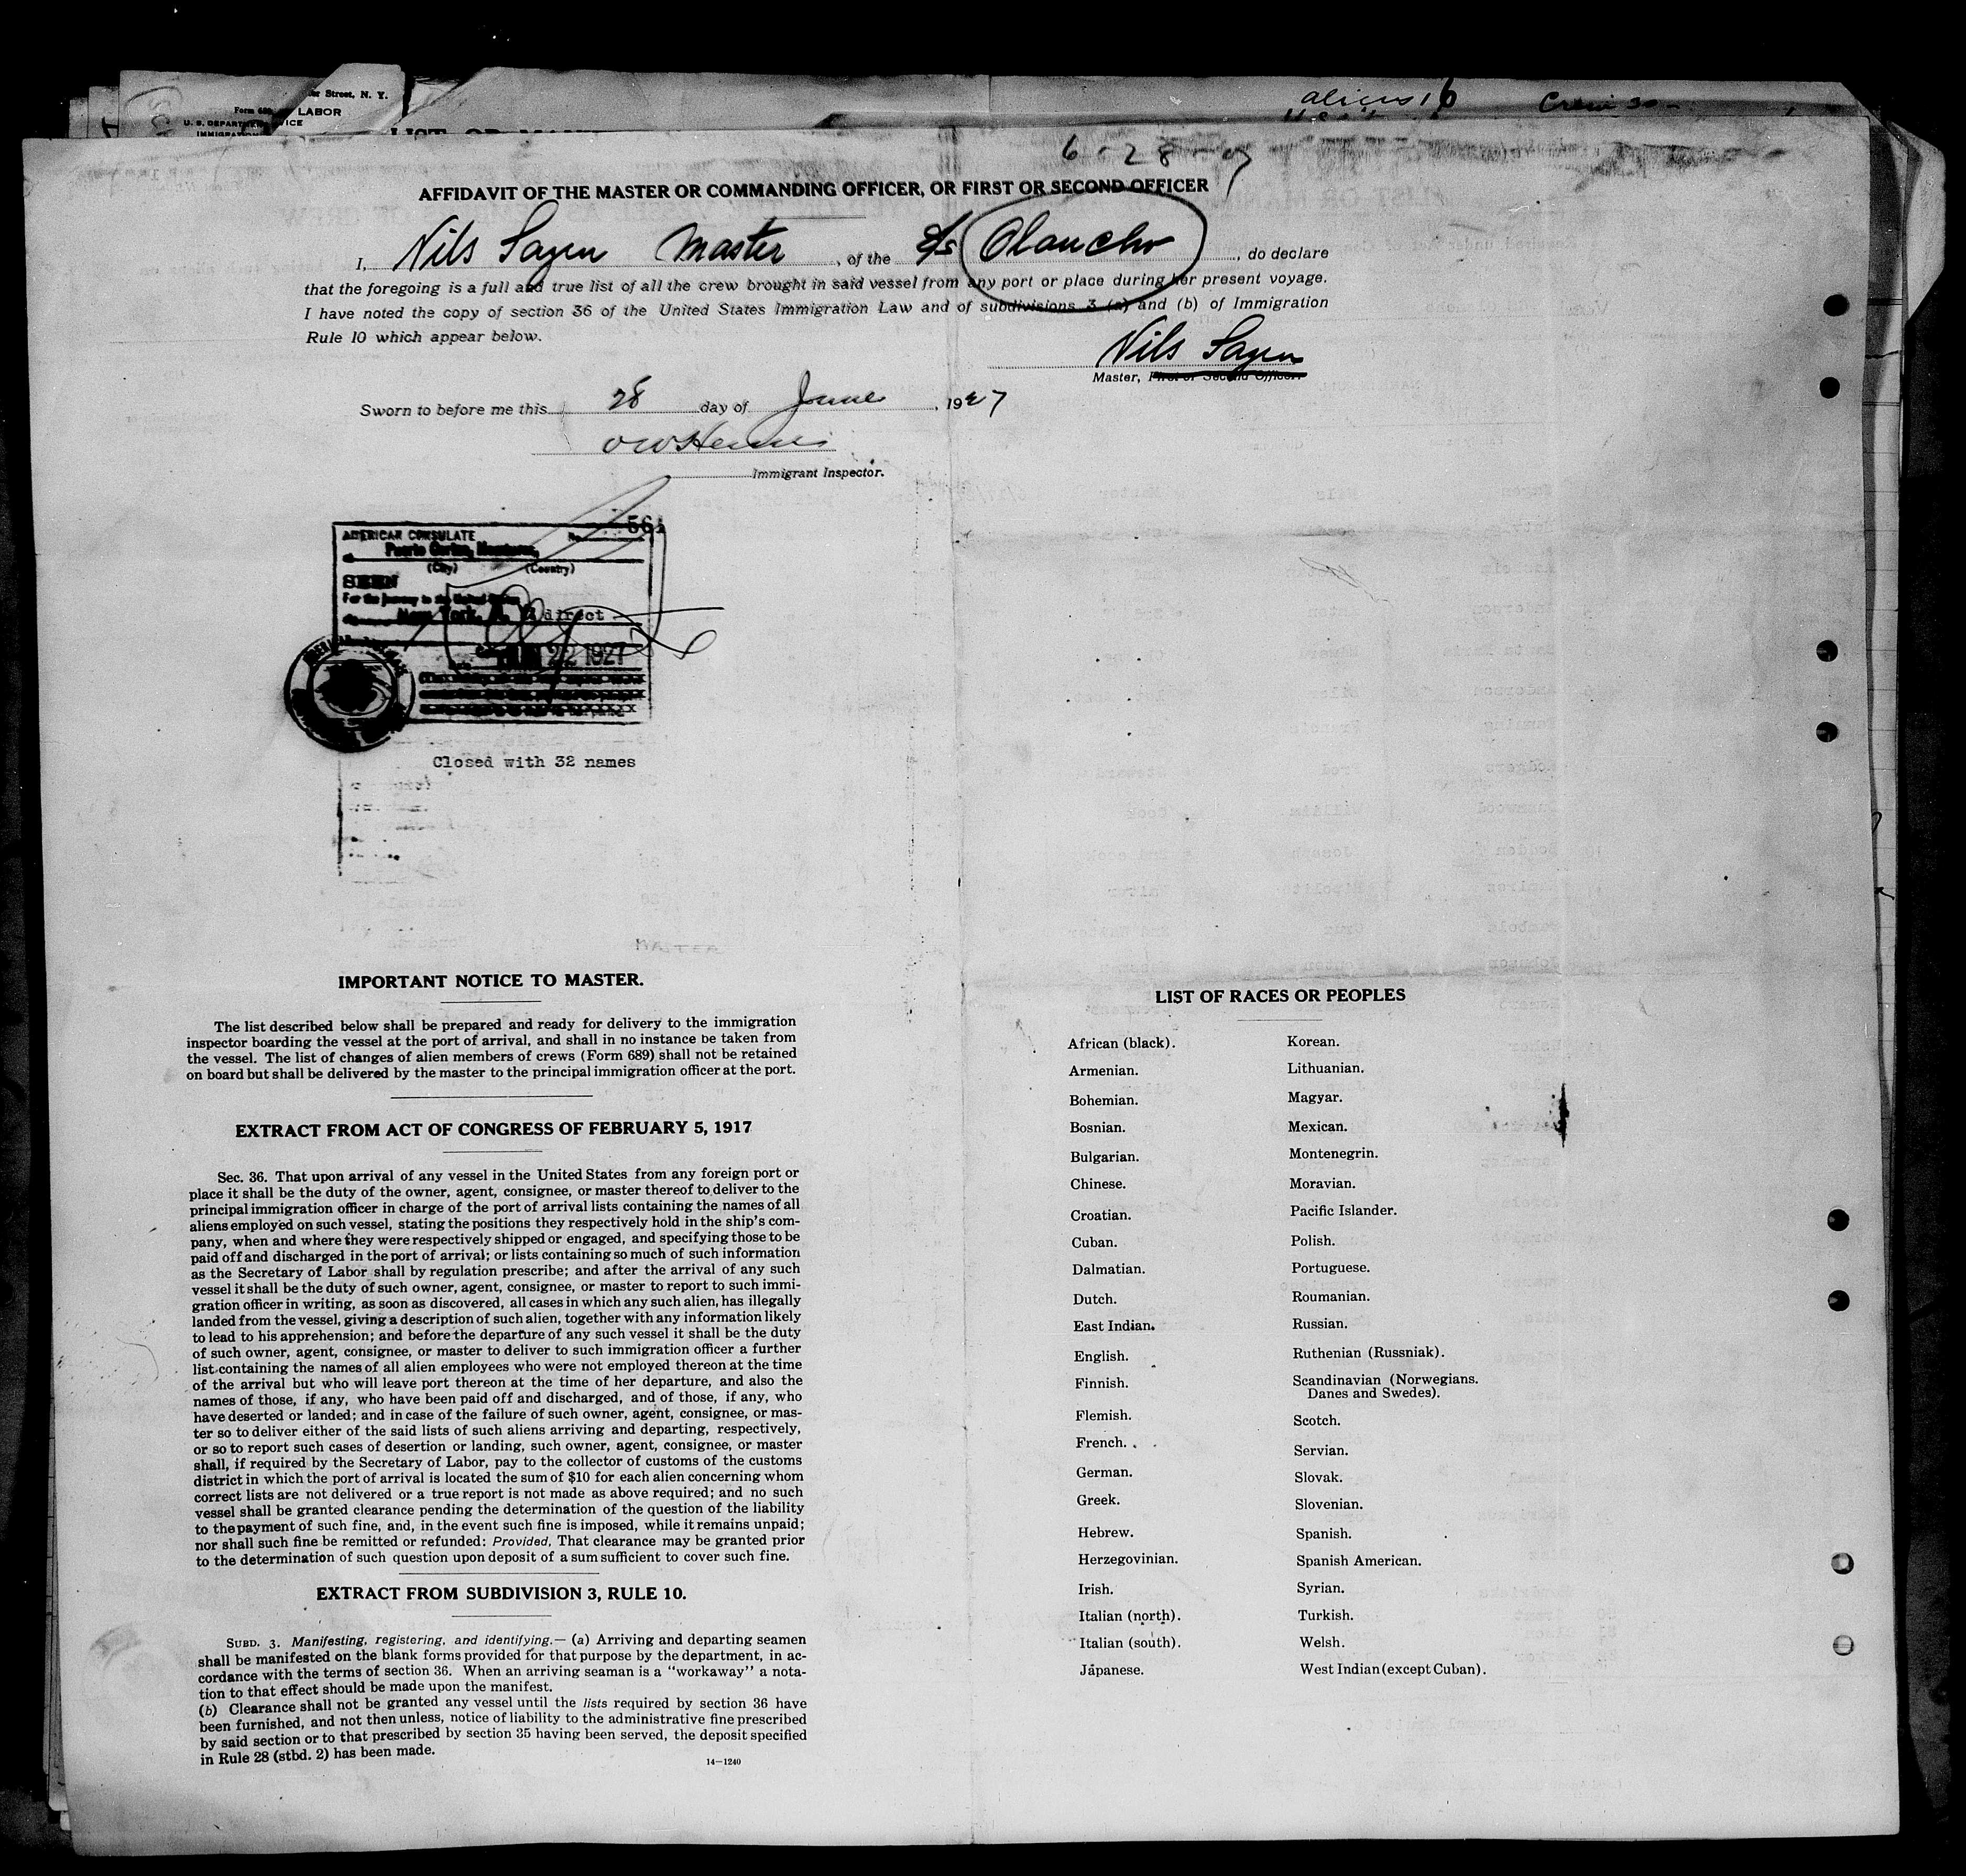 er Street, N. Y.
LABOR
aliens 16
Crew 30 -
6-28-27
AFFIDAVIT OF THE MASTER OR COMMANDING OFFICER, OR FIRST OR SECOND OFFICER
I, Nils Sagen Master, of the S/S Olancho, do declare
that the foregoing is a full and true list of all the crew brought in said vessel from any port or place during her present voyage.
I have noted the copy of section 36 of the United States Immigration Law and of subdivisions 3 (a) and (b) of Immigration
Rule 10 which appear below.
Nils Sagen
Master, First or Second Officer.
Sworn to before me this 28 day of June, 1927
Immigrant Inspector.
561
AMERICAN CONSULATE No.
Puerto Cortes, Honduras,
(City) (Country)
SEEN
For the journey to the United States
New York, N. Y. direct
JUN 22 1927
Closed with 32 names
IMPORTANT NOTICE TO MASTER.
The list described below shall be prepared and ready for delivery to the immigration
inspector boarding the vessel at the port of arrival, and shall in no instance be taken from
the vessel. The list of changes of alien members of crews (Form 689) shall not be retained
on board but shall be delivered by the master to the principal immigration officer at the port.
EXTRACT FROM ACT OF CONGRESS OF FEBRUARY 5, 1917
Sec. 36. That upon arrival of any vessel in the United States from any foreign port or
place it shall be the duty of the owner, agent, consignee, or master thereof to deliver to the
principal immigration officer in charge of the port of arrival lists containing the names of all
aliens employed on such vessel, stating the positions they respectively hold in the ship's com-
pany, when and where they were respectively shipped or engaged, and specifying those to be
paid off and discharged in the port of arrival; or lists containing so much of such information
as the Secretary of Labor shall by regulation prescribe; and after the arrival of any such
vessel it shall be the duty of such owner, agent, consignee, or master to report to such immi-
gration officer in writing, as soon as discovered, all cases in which any such alien, has illegally
landed from the vessel, giving a description of such alien, together with any information likely
to lead to his apprehension; and before the departure of any such vessel it shall be the duty
of such owner, agent, consignee, or master to deliver to such immigration officer a further
list containing the names of all alien employees who were not employed thereon at the time
of the arrival but who will leave port thereon at the time of her departure, and also the
names of those, if any, who have been paid off and discharged, and of those, if any, who
have deserted or landed; and in case of the failure of such owner, agent, consignee, or mas-
ter so to deliver either of the said lists of such aliens arriving and departing, respectively,
or so to report such cases of desertion or landing, such owner, agent, consignee, or master
shall, if required by the Secretary of Labor, pay to the collector of customs of the customs
district in which the port of arrival is located the sum of $10 for each alien concerning whom
correct lists are not delivered or a true report is not made as above required; and no such
vessel shall be granted clearance pending the determination of the question of the liability
to the payment of such fine, and, in the event such fine is imposed, while it remains unpaid;
nor shall such fine be remitted or refunded: Provided, That clearance may be granted prior
to the determination of such question upon deposit of a sum sufficient to cover such fine.
EXTRACT FROM SUBDIVISION 3, RULE 10.
SUBD. 3. Manifesting, registering, and identifying.— (a) Arriving and departing seamen
shall be manifested on the blank forms provided for that purpose by the department, in ac-
cordance with the terms of section 36. When an arriving seaman is a "workaway" a nota-
tion to that effect should be made upon the manifest.
(b) Clearance shall not be granted any vessel until the lists required by section 36 have
been furnished, and not then unless, notice of liability to the administrative fine prescribed
by said section or to that prescribed by section 35 having been served, the deposit specified
in Rule 28 (stbd. 2) has been made.
14—1240
LIST OF RACES OR PEOPLES
African (black).
Armenian.
Bohemian.
Bosnian.
Bulgarian.
Chinese.
Croatian.
Cuban.
Dalmatian.
Dutch.
East Indian.
English.
Finnish.
Flemish.
French.
German.
Greek.
Hebrew.
Herzegovinian.
Irish.
Italian (north).
Italian (south).
Japanese.
Korean.
Lithuanian.
Magyar.
Mexican.
Montenegrin.
Moravian.
Pacific Islander.
Polish.
Portuguese.
Roumanian.
Russian.
Ruthenian (Russniak).
Scandinavian (Norwegians.
Danes and Swedes).
Scotch.
Servian.
Slovak.
Slovenian.
Spanish.
Spanish American.
Syrian.
Turkish.
Welsh.
West Indian (except Cuban).